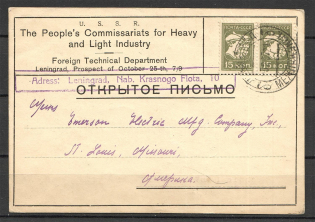 U. S. S. R.
The People's Commissariats for Heavy
and Light Industry
Foreign Technical Department
Leningrad, Prospect of October 25-th, 7/9
Adress: Leningrad, Nab. Krasnogo Flota, 10
15 КОП.
15 КОП.
ОТКРЫТОЕ ПИСЬМО
Emerson Electric Mfg. Company, Inc.,
St. Louis, Missouri,
Америка